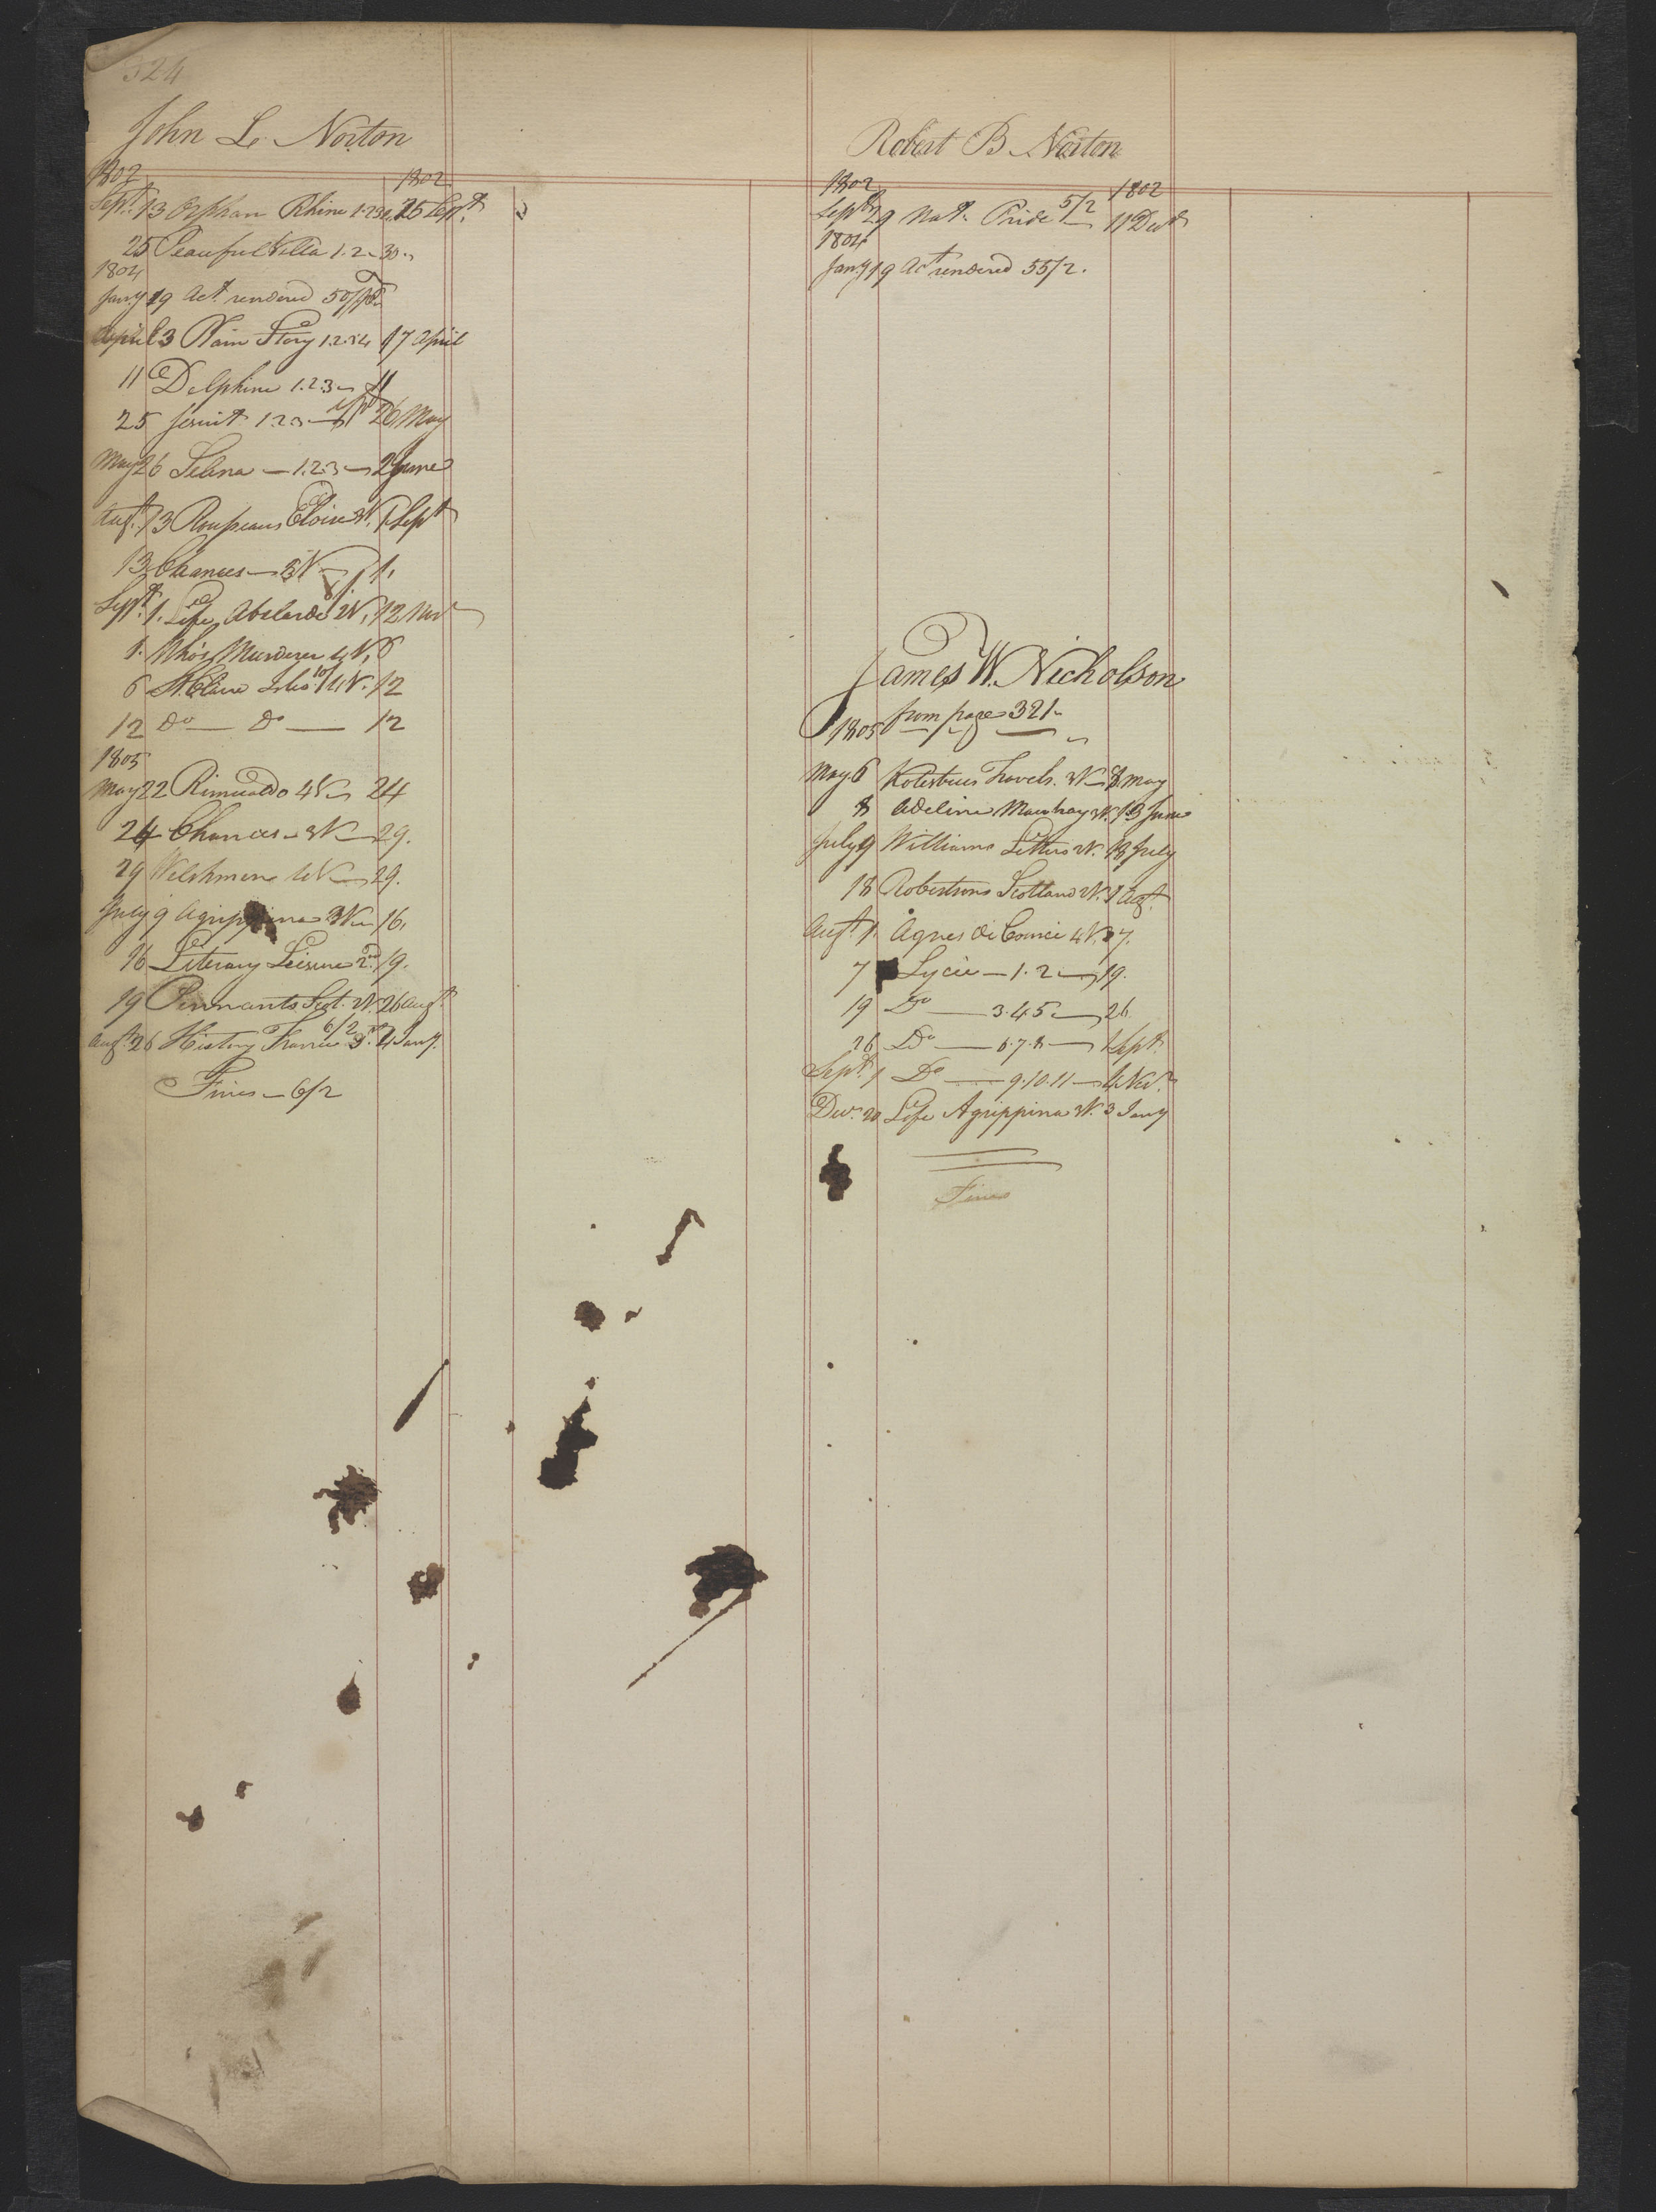 324
John L. Norton
1802 1802
Sept. 13 Orphan Rhine 1.2.3.4. 25 Sept.
25 Peaceful Villa 1.2 30
1804
Jany 19 Act. rendered 50/ pd
April 3 Plain Story 1.2.3.4 17 April
11 Delphine 1.2.3
25 Jesuit 1.2.3 26 May
May 26 Selina 1.2.3 2 June
Augt. 13 Rousseaus Eloisa 3V. 1 Sept
13 Chances 3V 1.
Sept. 1. Life Abelarde 2V, 12 Nov
1. Who's Murderer 4V, 6
6 St. Clair Isles 4V. 12
12 Do Do 12
1805
May 22 Rimualdo 4V 24
24 Chances 3V 29.
29 Welshmen 4V 29.
July 9 Agrippina 3V 16.
16 Literary Leisure 2. 19.
19 Pennants Scot. 2V. 26 Augt
Augt. 26 History France 6/2 3. 4 Jany.
Fines 6/2
Robert B Norton
1802 1802
Sept 29 Natl. Pride 5/2 11 Decr
1804
Jany 19 Act rendered 55/2.
James W. Nicholson
from page 321
1805
May 6 Kotesbues Travels. 3V 8 May
8 Adeline Mowbray 3V. 13 June
July 9 Williams Letters 2V. 18 July
18 Robertsons Scotland 2V. 1 Agt.
Augt. 1. Agnes de Courci 4V. 7.
7 Lycee 1.2 19.
19 Do 3.4.5 26
26 Do 6.7.8 1 Sept.
Sept. 1 Do 9.10.11 4 Nov.
Decr. 20 Life Agrippina 3V. 3 Jany
Fines